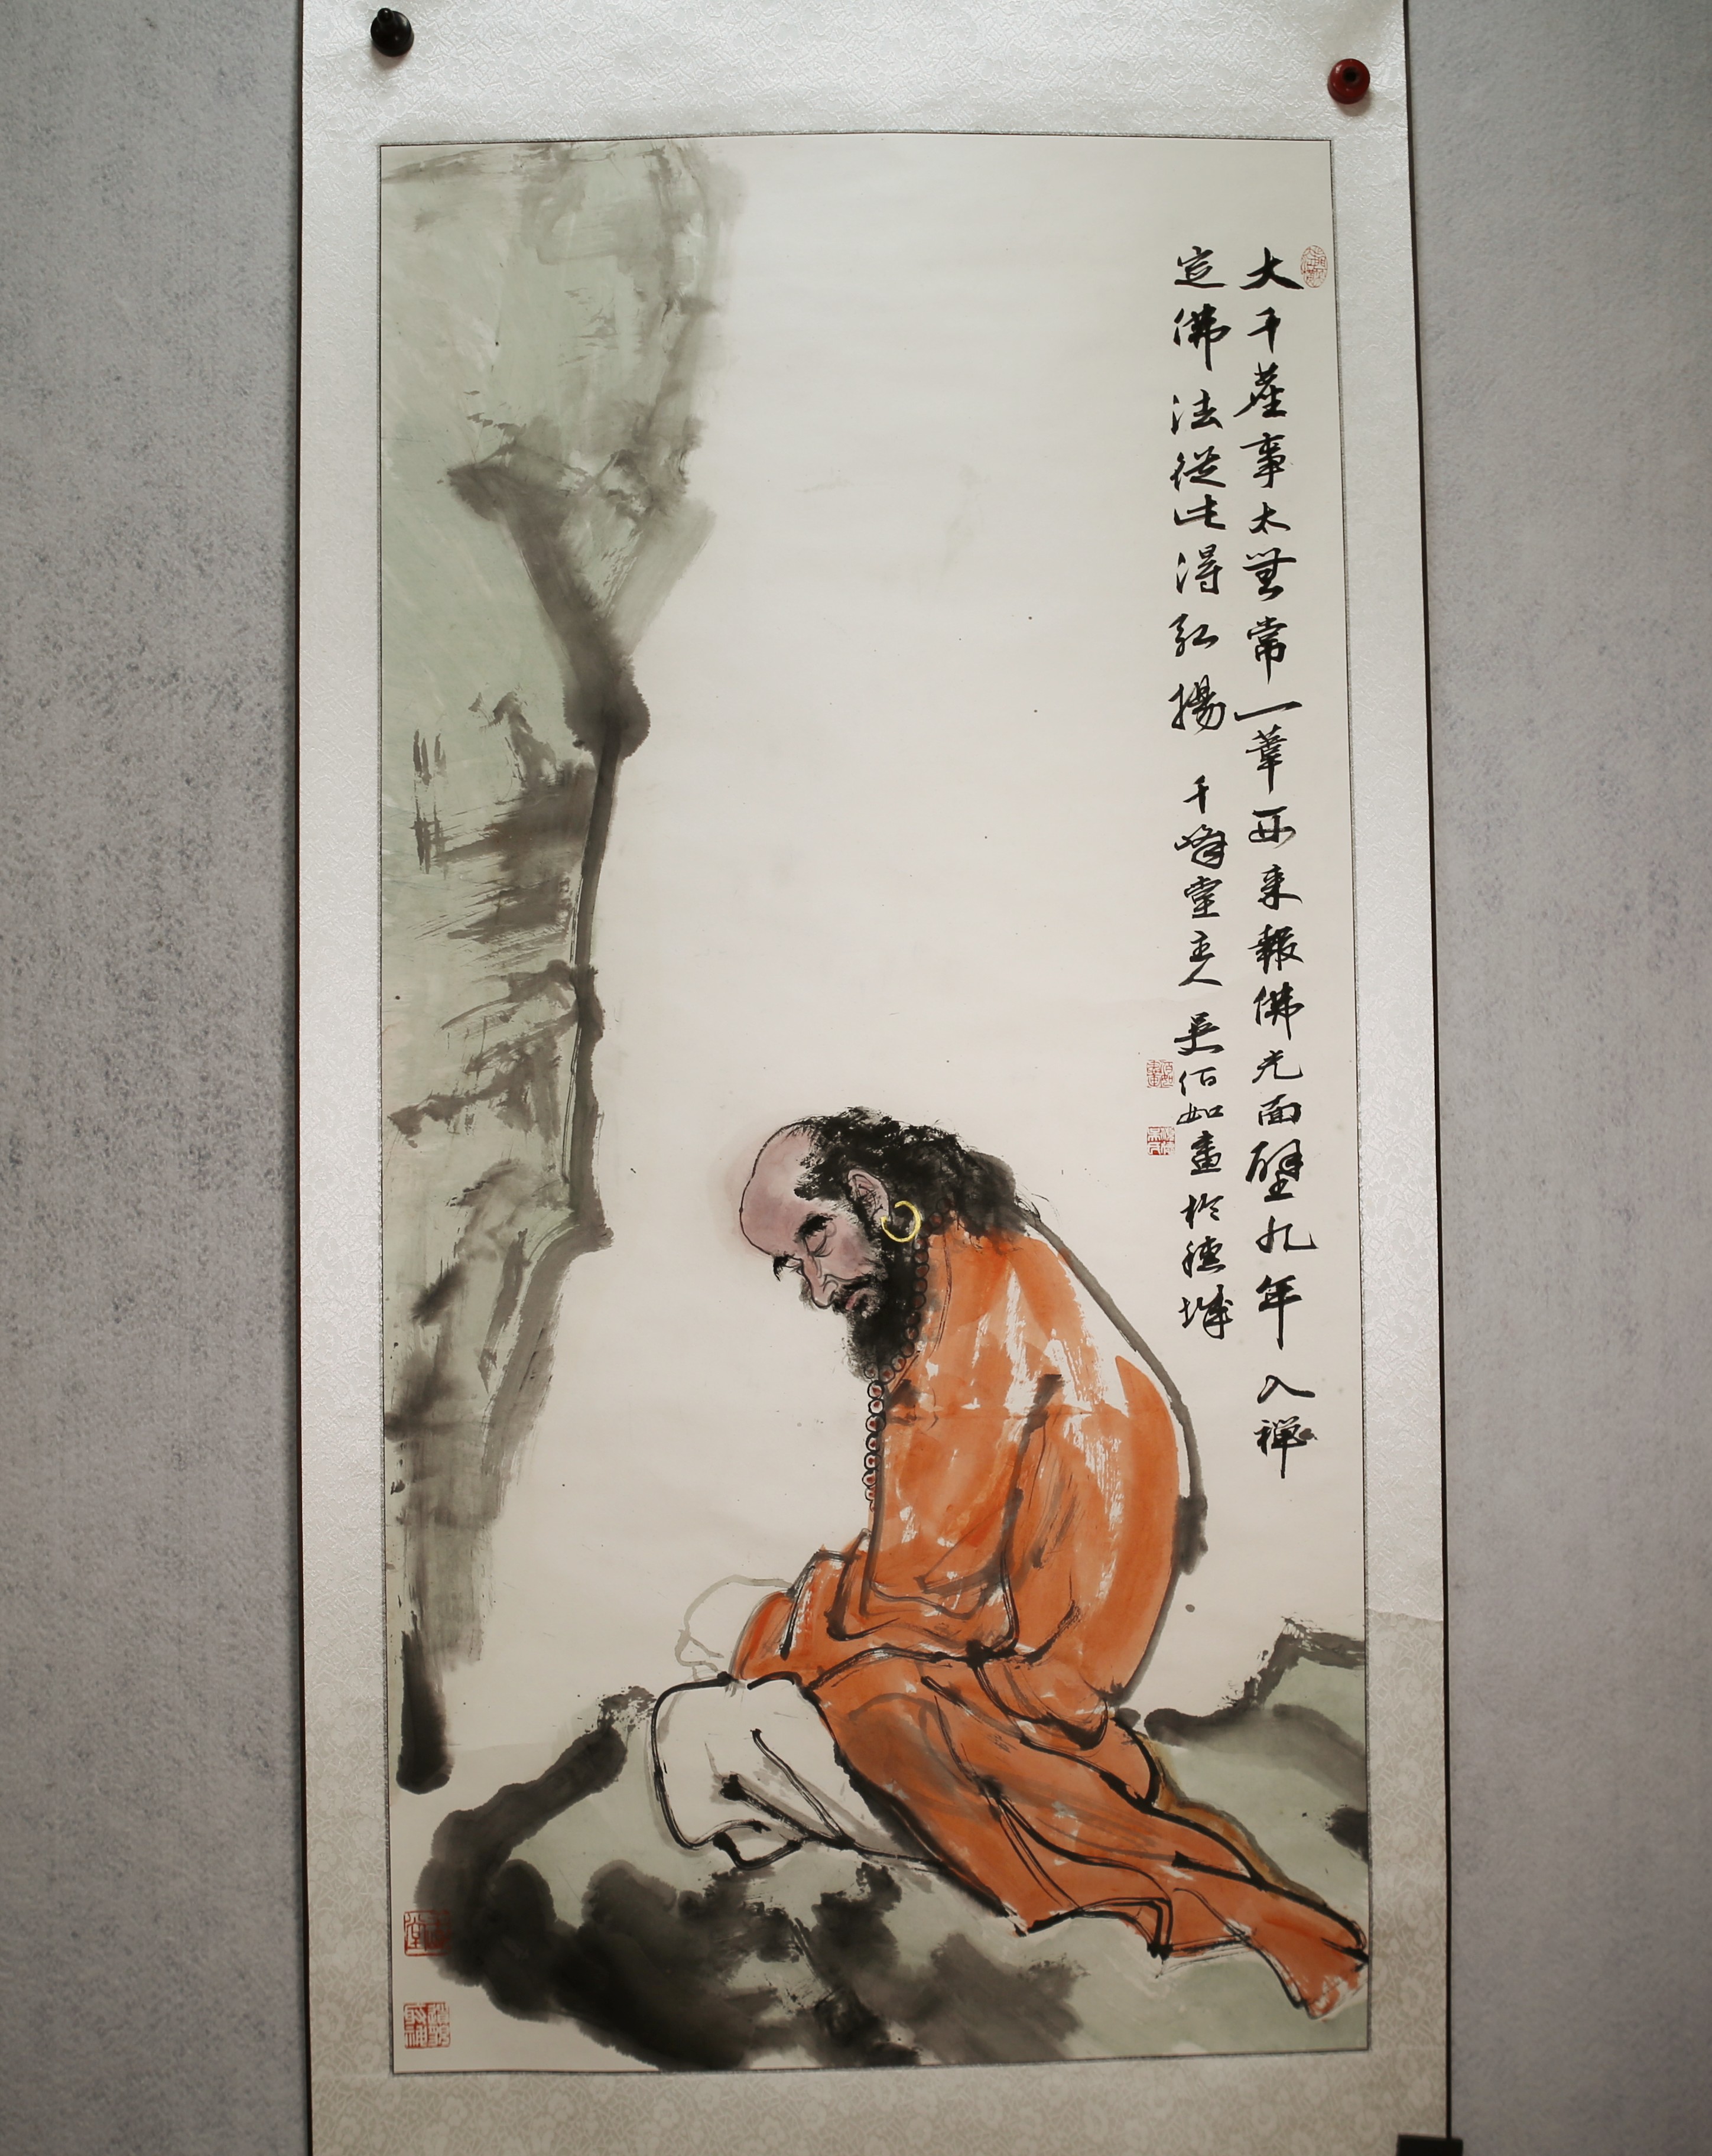 大千塵事太無常一葦西来報佛光面壁九年入禪
定佛法從此得弘揚 千峰堂主人 吳佰如畫於德城